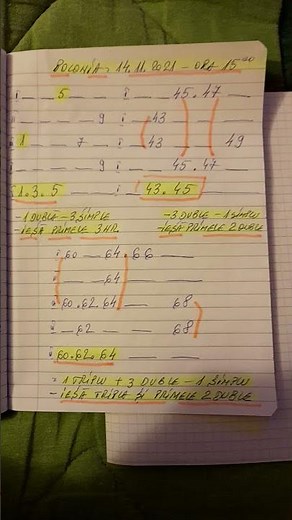 POLONIA: 14.11.2021 - ORE 15⁰⁰
i — — 5 i — — 45.47 —
ii — — — 9 i — 43 — —
i 1 — — 7 — i — 43 — — 49
i — — — 9 i — — 45.47 —
1.3.5 i 43.45
-1 DUBLE - 3 SIMPLE -3 DUBLE - 1 SIMPLU
-IESA PRIMELE 3 NR. -IESA PRIMELE 2 DUBLE
i 60 — 64.66 — —
i — — 64 — — —
i 60.62.64 — — 68
i — 62 — — — 68
i 60.62.64
= 1 TRIPLU + 3 DUBLE - 1 SIMPLU
- IESA TRIPLE SI PRIMELE 2 DUBLE